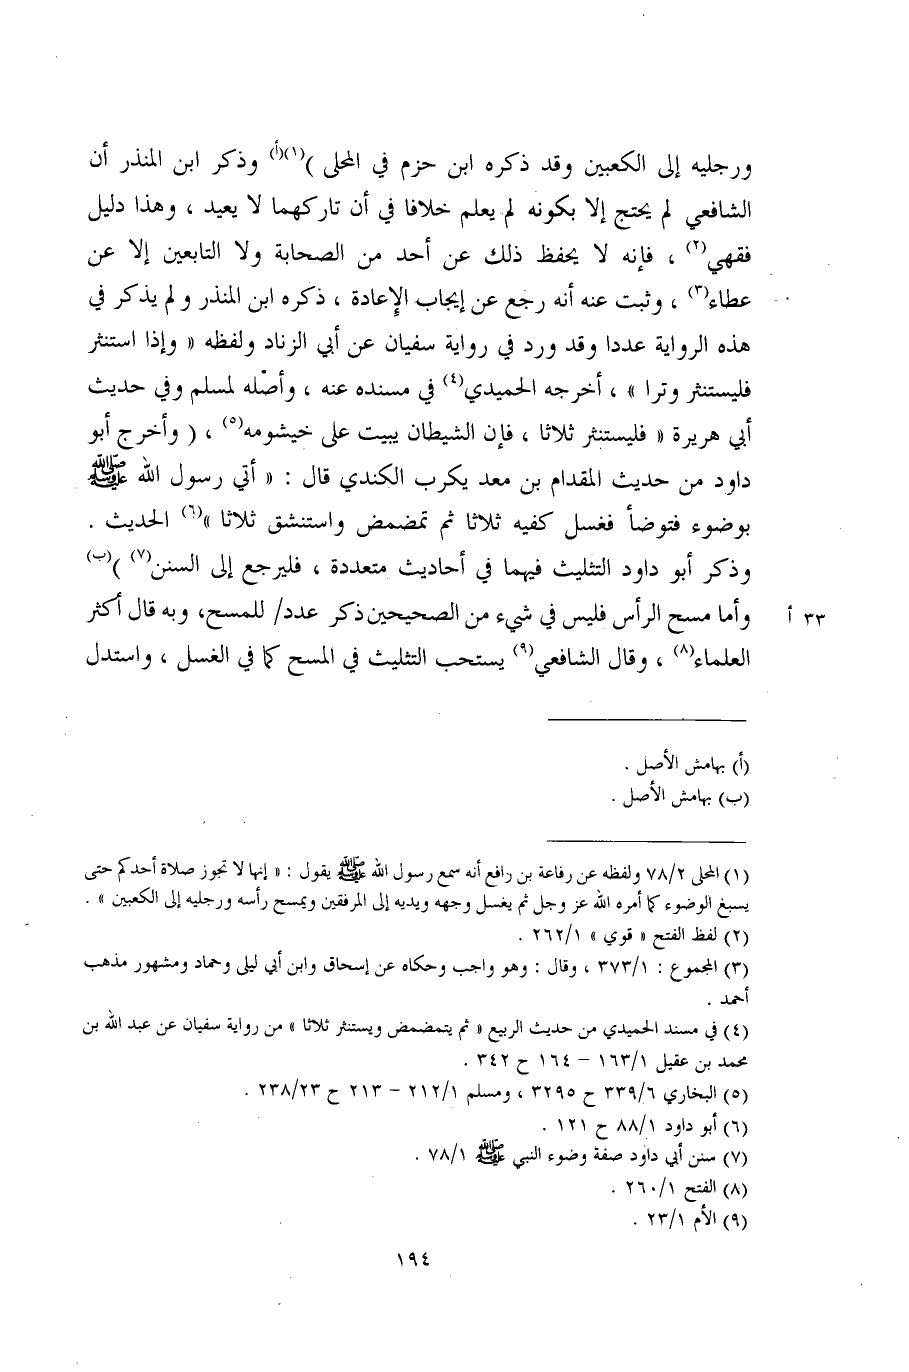 ورجليه إلى الكعبين وقد ذكره ابن حزم في المحلى )(١)(أ) وذكر ابن المنذر أن
الشافعي لم يحتج إلا بكونه لم يعلم خلافا في أن تاركهما لا يعيد ، وهذا دليل
فقهي(٢) ، فإنه لا يحفظ ذلك عن أحد من الصحابة ولا التابعين إلا عن
عطاء(٣) ، وثبت عنه أنه رجع عن إيجاب الإعادة ، ذكره ابن المنذر ولم يذكر في
هذه الرواية عددا وقد ورد في رواية سفيان عن أبي الزناد ولفظه « وإذا استنثر
فليستنثر وترا » ، أخرجه الحميدي(٤) في مسنده عنه ، وأصله لمسلم وفي حديث
أبي هريرة « فليستنثر ثلاثا ، فإن الشيطان يبيت على خيشومه(٥) ، ( وأخرج أبو
داود من حديث المقدام بن معد يكرب الكندي قال : « أتي رسول الله ﷺ
بوضوء فتوضأ فغسل كفيه ثلاثا ثم تمضمض واستنشق ثلاثا »(٦) الحديث .
وذكر أبو داود التثليث فيهما في أحاديث متعددة ، فليرجع إلى السنن(٧) )(ب)
وأما مسح الرأس فليس في شيء من الصحيحين ذكر عدد/ للمسح، وبه قال أكثر ٣٣ أ
العلماء(٨) ، وقال الشافعي(٩) يستحب التثليث في المسح كما في الغسل ، واستدل
(أ) بهامش الأصل .
(ب) بهامش الأصل .
(١) المحلى ٧٨/٢ ولفظه عن رفاعة بن رافع أنه سمع رسول الله ﷺ يقول : « إنها لا تجوز صلاة أحدكم حتى
يسبغ الوضوء كما أمره الله عز وجل ثم يغسل وجهه ويديه إلى المرفقين ويمسح رأسه ورجليه إلى الكعبين » .
(٢) لفظ الفتح « قوي » ٢٦٢/١ .
(٣) المجموع : ٣٧٣/١ ، وقال : وهو واجب وحكاه عن إسحاق وابن أبي ليلى وحماد ومشهور مذهب
أحمد .
(٤) في مسند الحميدي من حديث الربيع « ثم يتمضمض ويستنثر ثلاثا » من رواية سفيان عن عبد الله بن
محمد بن عقيل ١٦٣/١ – ١٦٤ ح ٣٤٢ .
(٥) البخاري ٣٣٩/٦ ح ٣٢٩٥ ، ومسلم ٢١٢/١ – ٢١٣ ح ٢٣٨/٢٣ .
(٦) أبو داود ٨٨/١ ح ١٢١ .
(٧) سنن أبي داود صفة وضوء النبي ﷺ ٧٨/١ .
(٨) الفتح ٢٦٠/١ .
(٩) الأم ٢٣/١ .
١٩٤